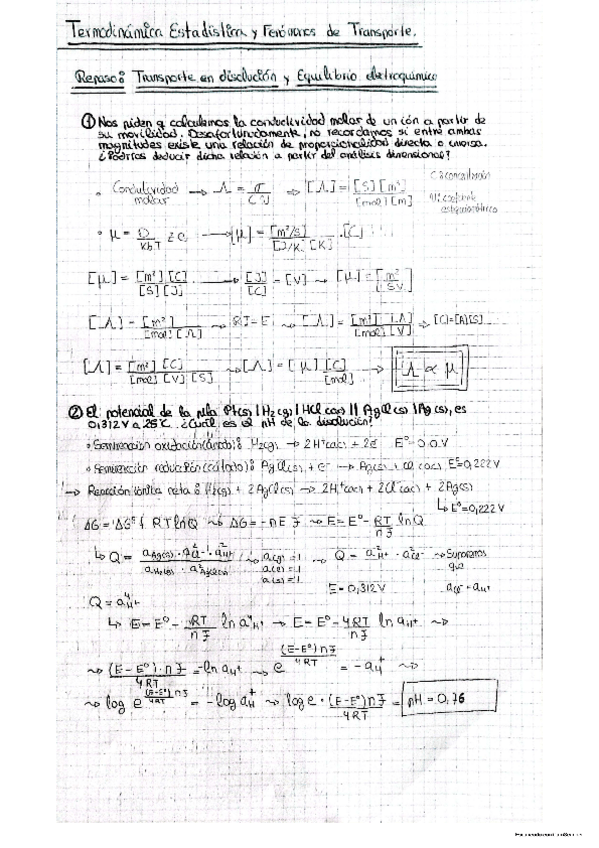 Termodinámica Estadística y Fenómenos de Transporte.
Repaso: Transporte en disolución y Equilibrio electroquímico
① Nos piden q calculemos la conductividad molar de un ión a partir de
su movilidad. Desafortunadamente, no recordamos si entre ambas
magnitudes existe una relación de proporcionalidad directa o inversa.
¿Podrías deducir dicha relación a partir del análisis dimensional?
• Conductividad molar → Λ = σ/(C) → [Λ] = [S][m²]/[mol][m]
C: concentración
coeficiente estequiométrico
• μ = D/(k_bT) z e → [μ] = [m²/s]/([J/K][K]) · [C]
[μ] = [m²][C]/([S][J]) → [J]/[C] = [V] → [μ] = [m²/SV]
[Λ] = [m²]/([mol][Ω]) → RI=E → [Λ] = [m²][A]/([mol][V]) → [C]=[A][S]
[Λ] = [m²][C]/([mol][V][S]) → [Λ] = [μ][C]/[mol] → Λ ∝ μ
② El potencial de la pila Pt(s) | H₂(g) | HCl(ac) || AgCl(s) | Ag(s), es
0,312V a 25°C. ¿Cuál es el pH de la disolución?
• Semirreacción oxidación (ánodo): H₂(g) → 2H⁺(ac) + 2e⁻ E°=0.0V
• Semirreacción reducción (cátodo): AgCl(s) + e⁻ → Ag(s) + Cl⁻(ac) E°=0,222V
→ Reacción iónica neta: H₂(g) + 2AgCl(s) → 2H⁺(ac) + 2Cl⁻(ac) + 2Ag(s)
↳ E°=0,222V
ΔG = ΔG° + RT lnQ → ΔG = -nEF → E = E° - RT/nF lnQ
↳ Q = → a(g)=1 a(l)=1 a(s)=1 Q = a²H⁺ · a²Cl⁻ → Suponemos que
E = 0,312V aCl⁻ = aH⁺
Q = a⁴H⁺
↳ E = E° - RT/nF ln a⁴H⁺ → E = E° - 4RT/nF ln aH⁺ →
→ (E-E°)·nF/4RT = -ln aH⁺ → e^((E-E°)nF/4RT) = -aH⁺ →
→ log e^((E-E°)nF/4RT) = -log aH⁺ → log e · (E-E°)nF/4RT = pH = 0,76